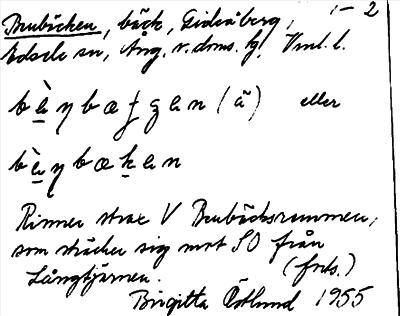 Brubäcken, bäck, Gideåberg, 1-2
Edsele sn, Ång. v. dms. lg. Vml. l.
b è̲ ŋ b æ ʄ g e n (ä) eller
b è̲ ŋ b æ k̲ e n
Rinner strax V Brubäcksrammen,
som sträcker sig mot SO från
Långtjärnen. (forts.)
Birgitta Östlund 1955